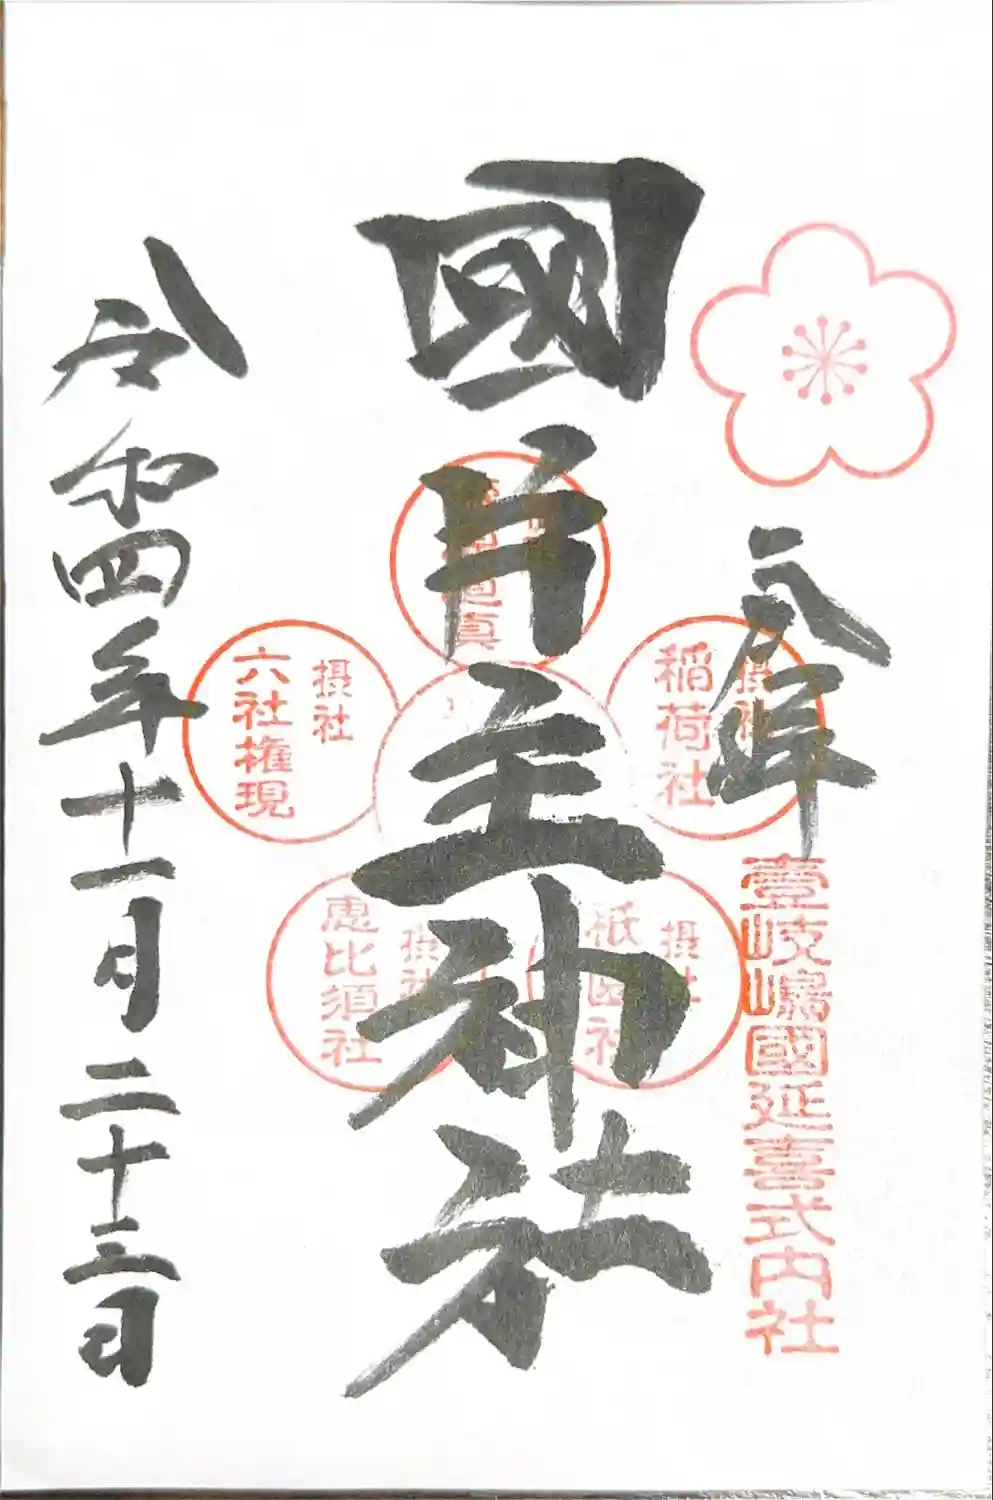 奉拝
壹岐嶋國延喜式内社
摂社
稲荷社
國片主神社
摂社
祇園社
摂社
六社権現
摂社
恵比須社
令和四年十一月二十三日